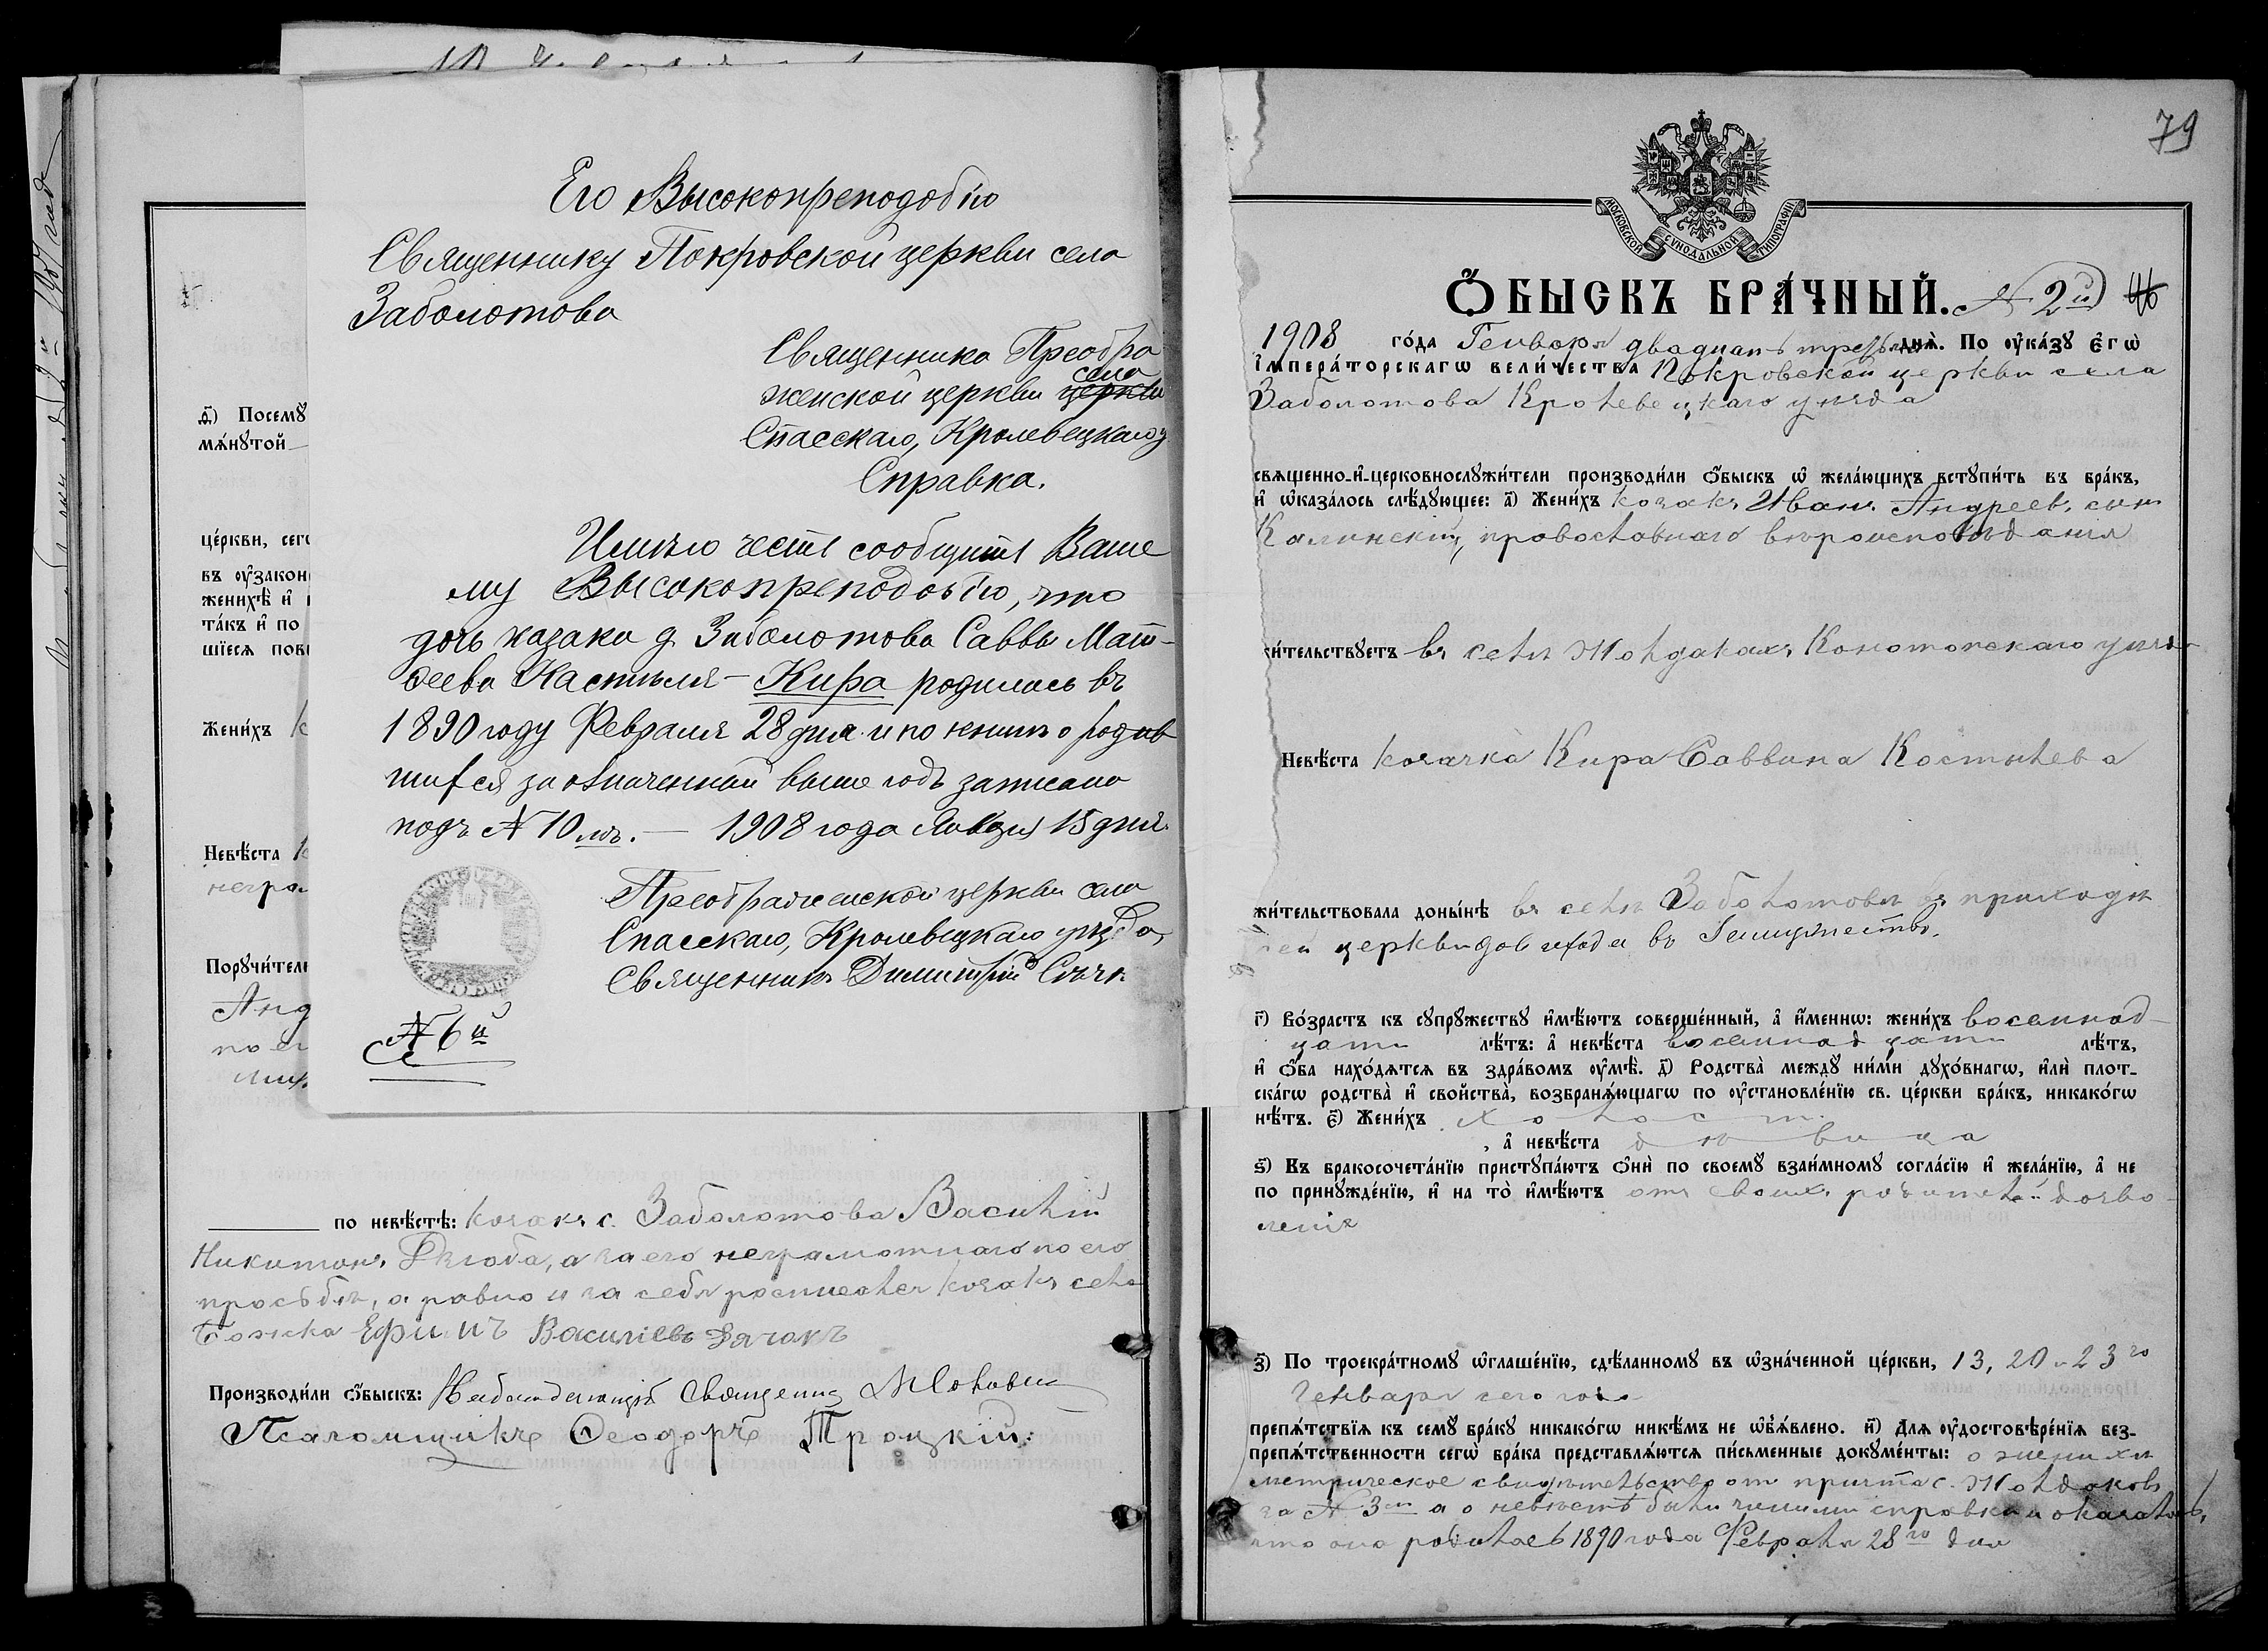 Его Высокопреподобію
Священнику Покровской церкви села
Заболотова
Священника Преобра
женской церкви церкви села
Спасскаго, Кролевецкаго у
Справка.
Имѣю честь сообщить Ваше
му Высокопреподобію, что
дочь казака д. Заболотова Саввы Мат-
ѳеева Кастыля - Кира родилась въ
1890 году Февраля 28 дня и по книгѣ о родив
шихся за означенный выше годъ записано
подъ № 10 мъ. — 1908 года Января 15 дня.
Преображенской церкви села
Спасскаго, Кролевецкаго уѣзда,
Священникъ Димитрій
№ 6й
д҃) Посемꙋ
мѧ́нꙋтой
це́ркви, сегѡ
въ ᲂу҆закон
женихѣ̀ и҆
та́къ и҆ по
шїесѧ пов
Жени́хъ К
Невѣ́ста К
негра
Порꙋчи́тел
Анд
по ег
по невѣ́стѣ: козакъ с. Заболотова Василій
Никитинъ Дзюба, а за его неграмотнаго по его
прозьбѣ, а равно и за себя росписался козакъ села
Божка Ефимъ Василіевъ Дячокъ
Производи́ли ѻ҆́быскъ: Наблюдающій Священник
Псаломщикъ Ѳеодоръ Троцкій.
79
МОСКОВСКОЙ СѴНОДАЛЬНОЙ ТИПОГРАФІИ
Ѻ҆́БЫСКЪ БРА́ЧНЫЙ. № 2й
1908 го́да Генваря двадцать третья днѧ̀. По ᲂу҆ка́зꙋ є҆гѡ̀
і҆мпера́торскагѡ вели́чества Покровской церкви села
Заболотова Кролевецкаго уѣзда
свѧще́нно-и҆-церковнослꙋжи́тели производи́ли ѻ҆́быскъ ѡ҆ жела́ющихъ вступи́ть въ бра́къ,
и҆ ѡ҆каза́лось слѣ́дꙋющее: а҃) Жени́хъ козакъ Иванъ Андреевъ сынъ
Калинскій, православнаго вѣроисповѣданія
жи́тельствꙋетъ въ селѣ Жолдакахъ Конотопскаго уѣзда
Невѣ́ста козачка Кира Саввина Костылева
жи́тельствовала донн́нѣ въ селѣ Заболотовѣ въ приходѣ
сей церкви до выхода въ Замужество.
г҃) Во́зрастъ къ сꙋпрꙋ́жествꙋ и҆мѣ́ютъ соверше́нный, а҆ и҆́меннѡ: жени́хъ восемнад-
цати лѣ́тъ: а҆ невѣ́ста восемнадцати лѣ́тъ,
и҆ ѻ҆́ба нахо́дѧтсѧ въ здра́вомъ ᲂу҆мѣ̀. д҃) Родства̀ междꙋ ни́ми дꙋхо́внагѡ, и҆лѝ плот-
ска́гѡ родства̀ и҆ сво́йства̀, возбранѧ́ющагѡ по ᲂу҆становле́нїю св. це́ркви бра́къ, никако́гѡ
нѣ́тъ. є҃) Жени́хъ холостъ
, а҆ невѣ́ста дѣвица
ѕ҃) Къ бракосочета́нїю пристꙋпа́ютъ ѻ҆нѝ по своемꙋ̀ взаи́мномꙋ согла́сїю и҆ жела́нїю, а҆ не
по принꙋжде́нїю, и҆ на то̀ и҆мѣ́ютъ отъ своихъ родителей дозво-
ленія
з҃) По троекра́тномꙋ ѡ҆глаше́нїю, сдѣ́ланномꙋ въ ѡ҆зна́ченной це́ркви, 13, 20 и 23 го
Генваря сего года
препѧ́тствїѧ къ семꙋ̀ бра́кꙋ никако́гѡ никѣ́мъ не ѡ҆б̾ѧ́влено. и҃) Длѧ ᲂу҆достовѣре́нїѧ без-
препѧ́тственности сегѡ̀ бра́ка представлѧ́ютсѧ пи́сьменные докꙋме́нты: о женихѣ
метрическое свидѣтельство от причта с. Жолдаковъ
за № 3 м а о невѣстѣ были чинимы справки и оказалось,
что она родилась 1890 года Февраля 28 го дня